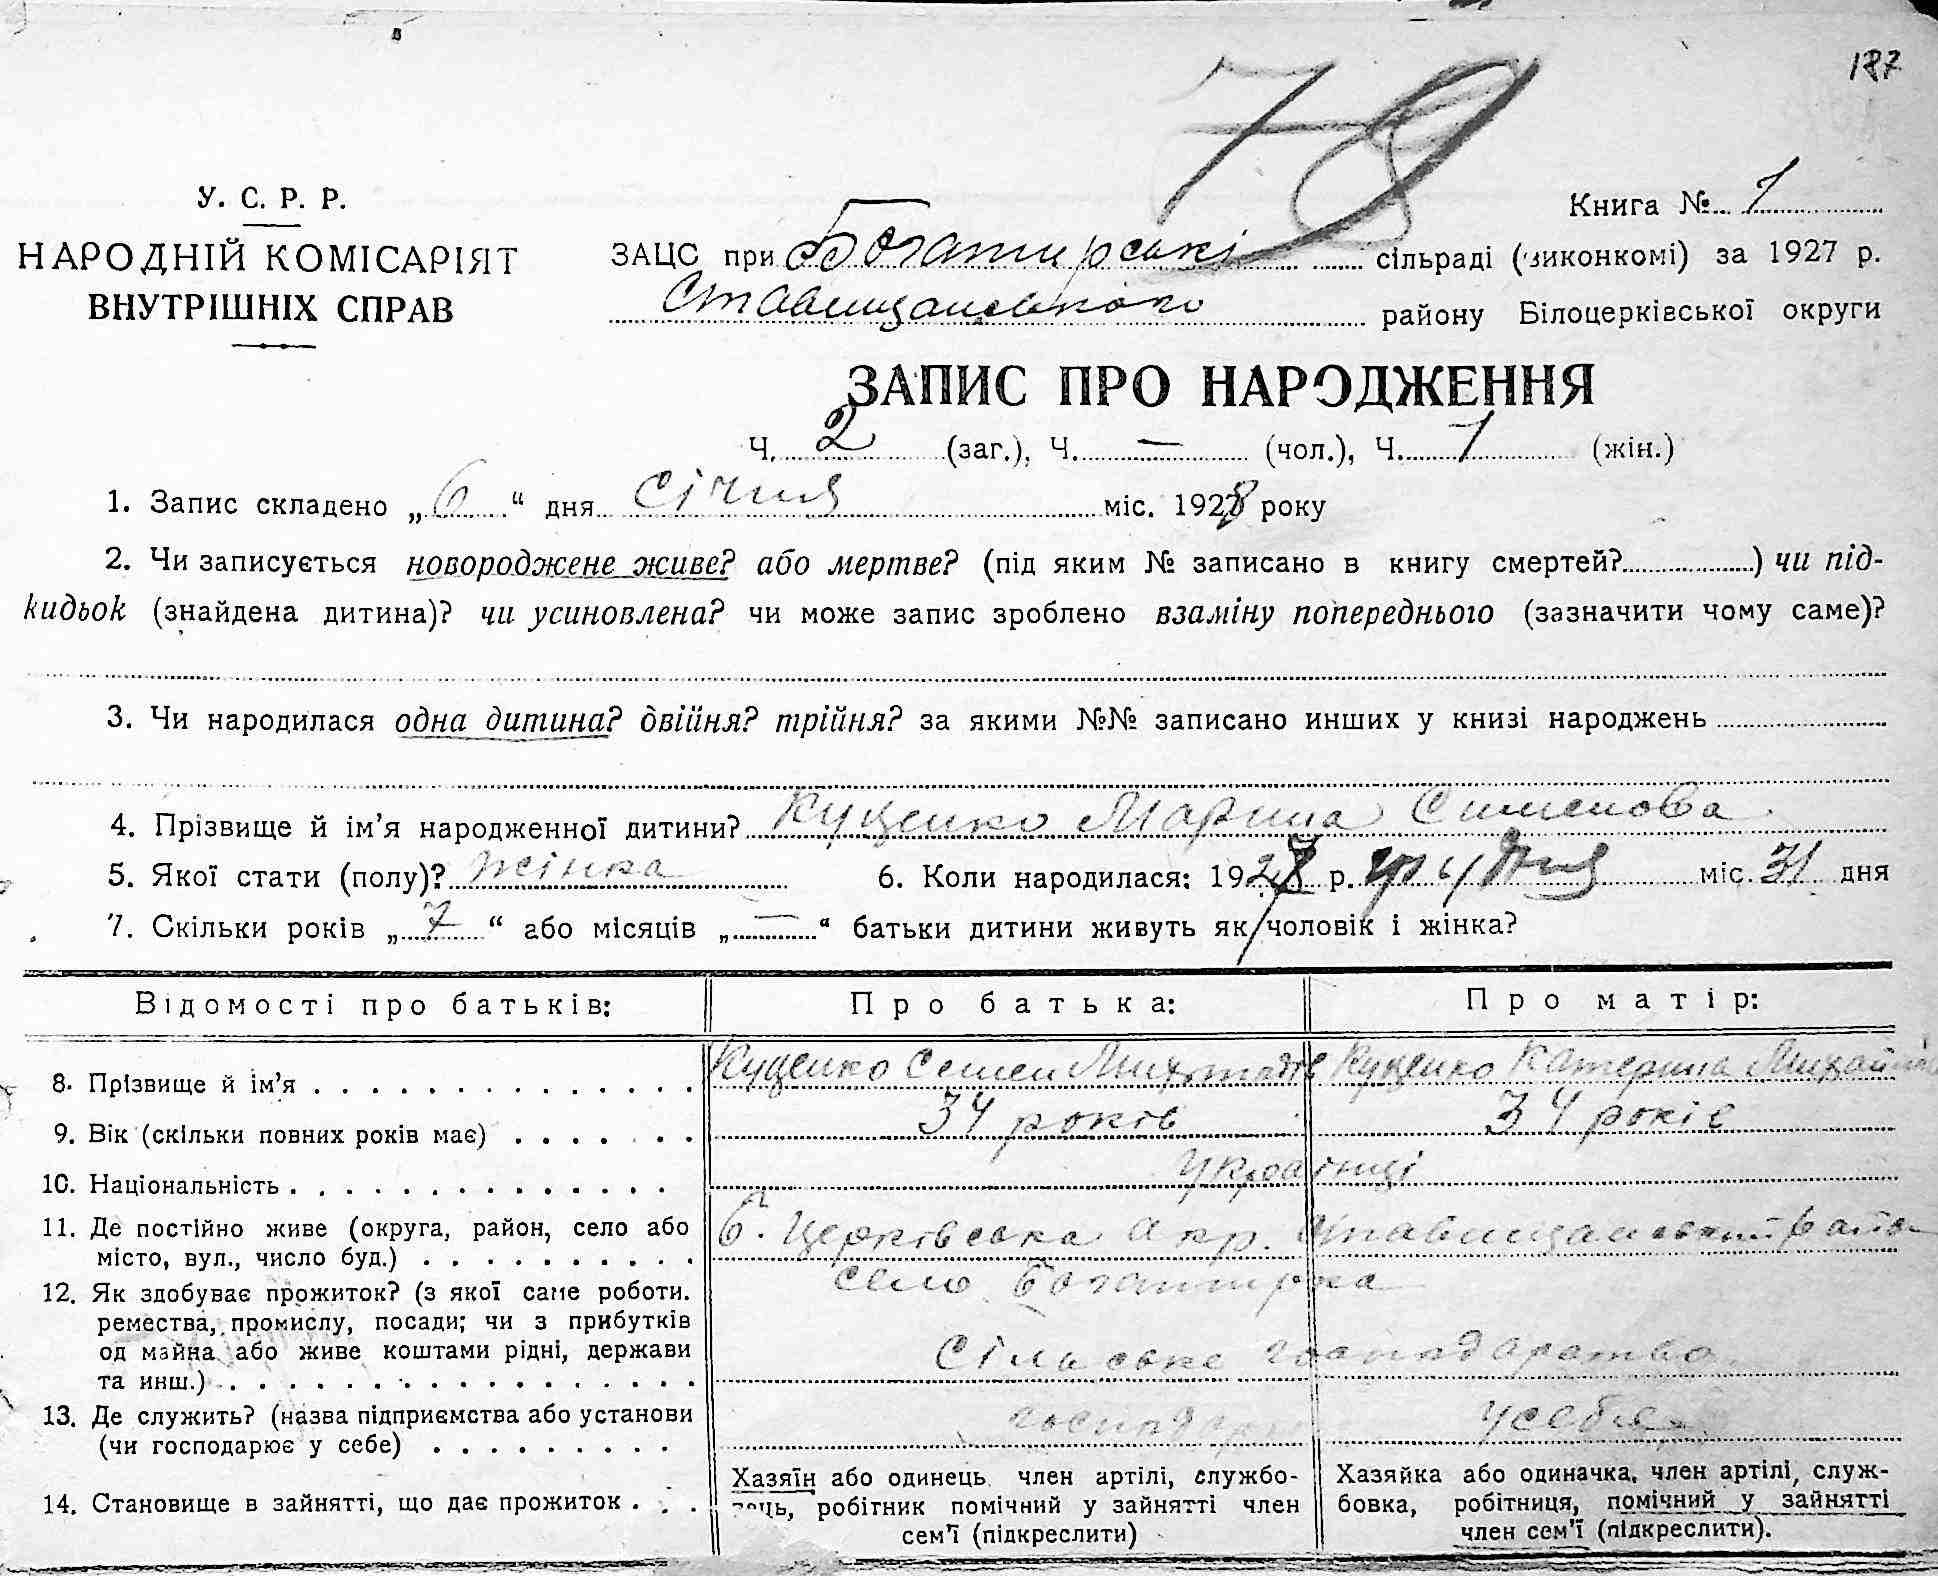 187
78
У. С. Р. Р.
НАРОДНІЙ КОМІСАРІЯТ
ВНУТРІШНІХ СПРАВ
Книга № 1
ЗАЦС при Богатирські сільраді (виконкомі) за 1927 р.
Ставищанського району Білоцерківської округи
ЗАПИС ПРО НАРОДЖЕННЯ
Ч. 2 (заг.), Ч. — (чол.), Ч. 1 (жін.)
1. Запис складено „ 6 “ дня січня міс. 1928 року
2. Чи записується новороджене живе? або мертве? (під яким № записано в книгу смертей?) чи під-
кидьок (знайдена дитина)? чи усиновлена? чи може запис зроблено взаміну попереднього (зазначити чому саме)?
3. Чи народилася одна дитина? двійня? трійня? за якими №№ записано инших у книзі народжень
4. Прізвище й ім’я народженної дитини? Куценко Марина Сименова
5. Якої стати (полу)? жінка 6. Коли народилася: 1927 р. грудня міс. 31 дня
7. Скільки років „ 7 “ або місяців „ — “ батьки дитини живуть як чоловік і жінка?
Відомості про батьків: Про батька: Про матір:
8. Прізвище й ім’я Куценко Семен Куценко Катерина
9. Вік (скільки повних років має) 34 років 34 років
10. Національність Українці
11. Де постійно живе (округа, район, село або
місто, вул., число буд.) Б. Церківська окр. Ставищанський
село Богатирка
12. Як здобуває прожиток? (з якої саме роботи.
ремества, промислу, посади; чи з прибутків
од майна або живе коштами рідні, держави
та инш.) Сільське господарство
13. Де служить? (назва підприємства або установи
(чи господарює у себе) господарі у себе
14. Становище в зайнятті, що дає прожиток
Хазяїн або одинець член артілі, службо-
вець, робітник помічний у зайнятті член
сем’ї (підкреслити)
Хазяйка або одиначка, член артілі, служ-
бовка, робітниця, помічний у зайнятті
член сем’ї (підкреслити).